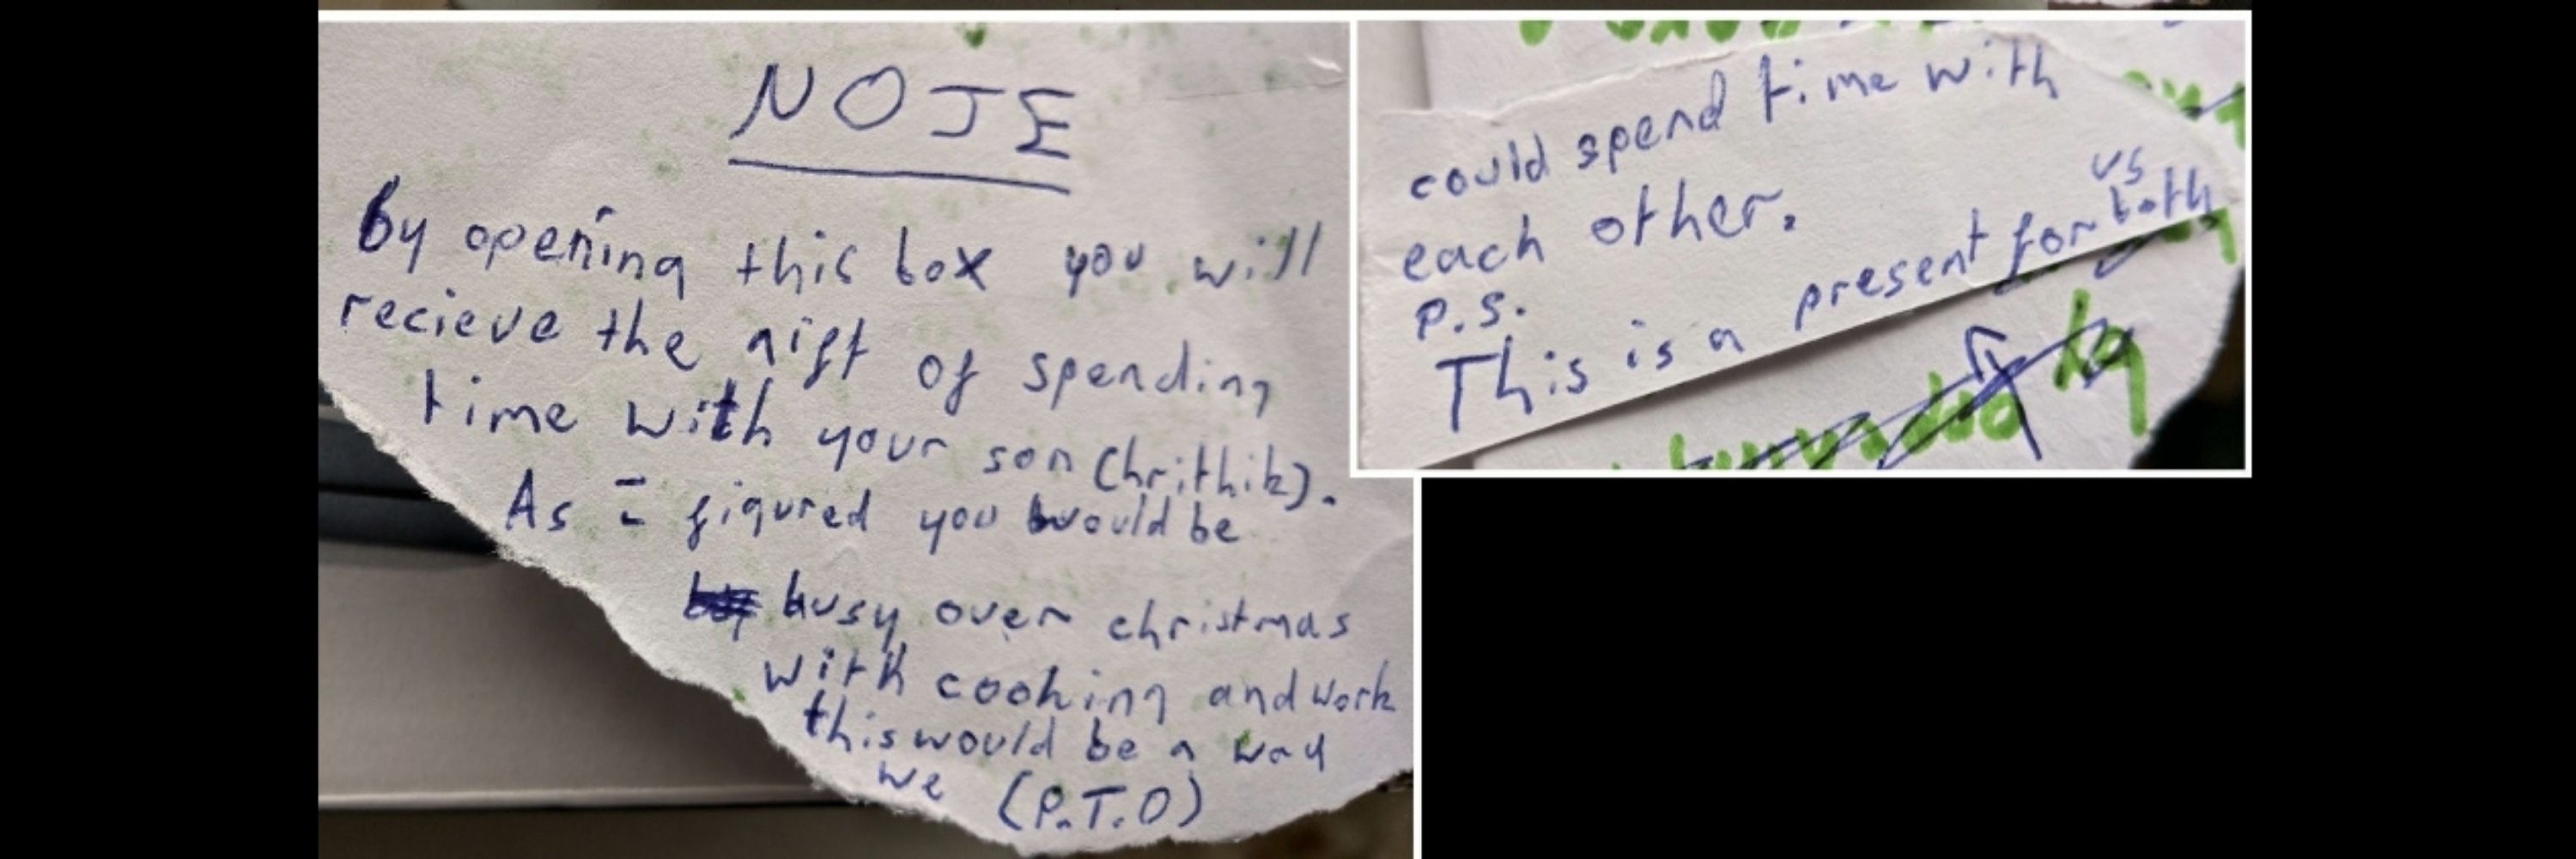 NOTE
By opening this box you will
recieve the gift of spending
time with your son (hrithik).
As I figured you would be
busy over christmas
with cooking and work
this would be a way
we (P.T.O)
could spend time with
each other.
P.S.
This is a present for us both
by